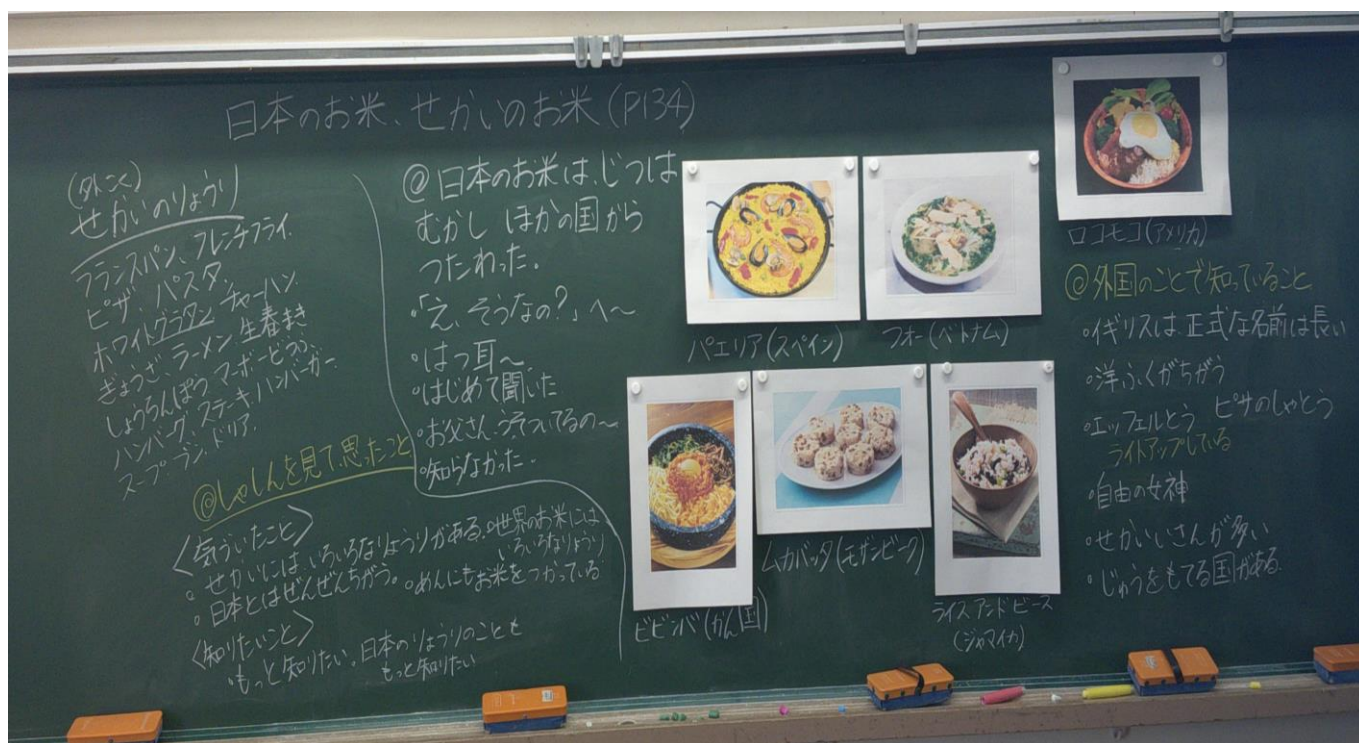 日本のお米、せかいのお米(P134)
(外こく)
せかいのりょうり
フランスパン、フレンチフライ、
ピザ、パスタ、
ホワイトグラタン チャーハン、
ぎょうざ ラーメン 生春まき
しょうろんぽう マーボーどうふ
ハンバーグ、ステーキ、ハンバーガー、
スープ ラン、ドリア、
@日本のお米は、じつは
むかし ほかの国から
つたわった。
・「え、そうなの?」へ〜
・はつ耳〜
・はじめて聞いた
・お父さん、
・知らなかった。
@しゃしんを見て思ったこと
〈気づいたこと〉
・せかいには いろいろなりょうりがある。
・世界のお米には
いろいろなりょうり
・日本とはぜんぜんちがう。
・めんにもお米をつかっている
〈知りたいこと〉
・もっと知りたい。
日本のりょうりのことを
もっと知りたい
パエリア(スペイン)
フォー(ベトナム)
ビビンバ(かん国)
ムカパッタ(モザンビーク)
ライスアンドビーズ
(ジャマイカ)
ロコモコ(アメリカ)
@外国のことで知っていること
・イギリスは 正式な名前は長い
・洋ふくがちがう
・エッフェルとう ピサのしゃとう
ライトアップしている
・自由の女神
・せかいいさんが多い
・じゅうをもてる国がある